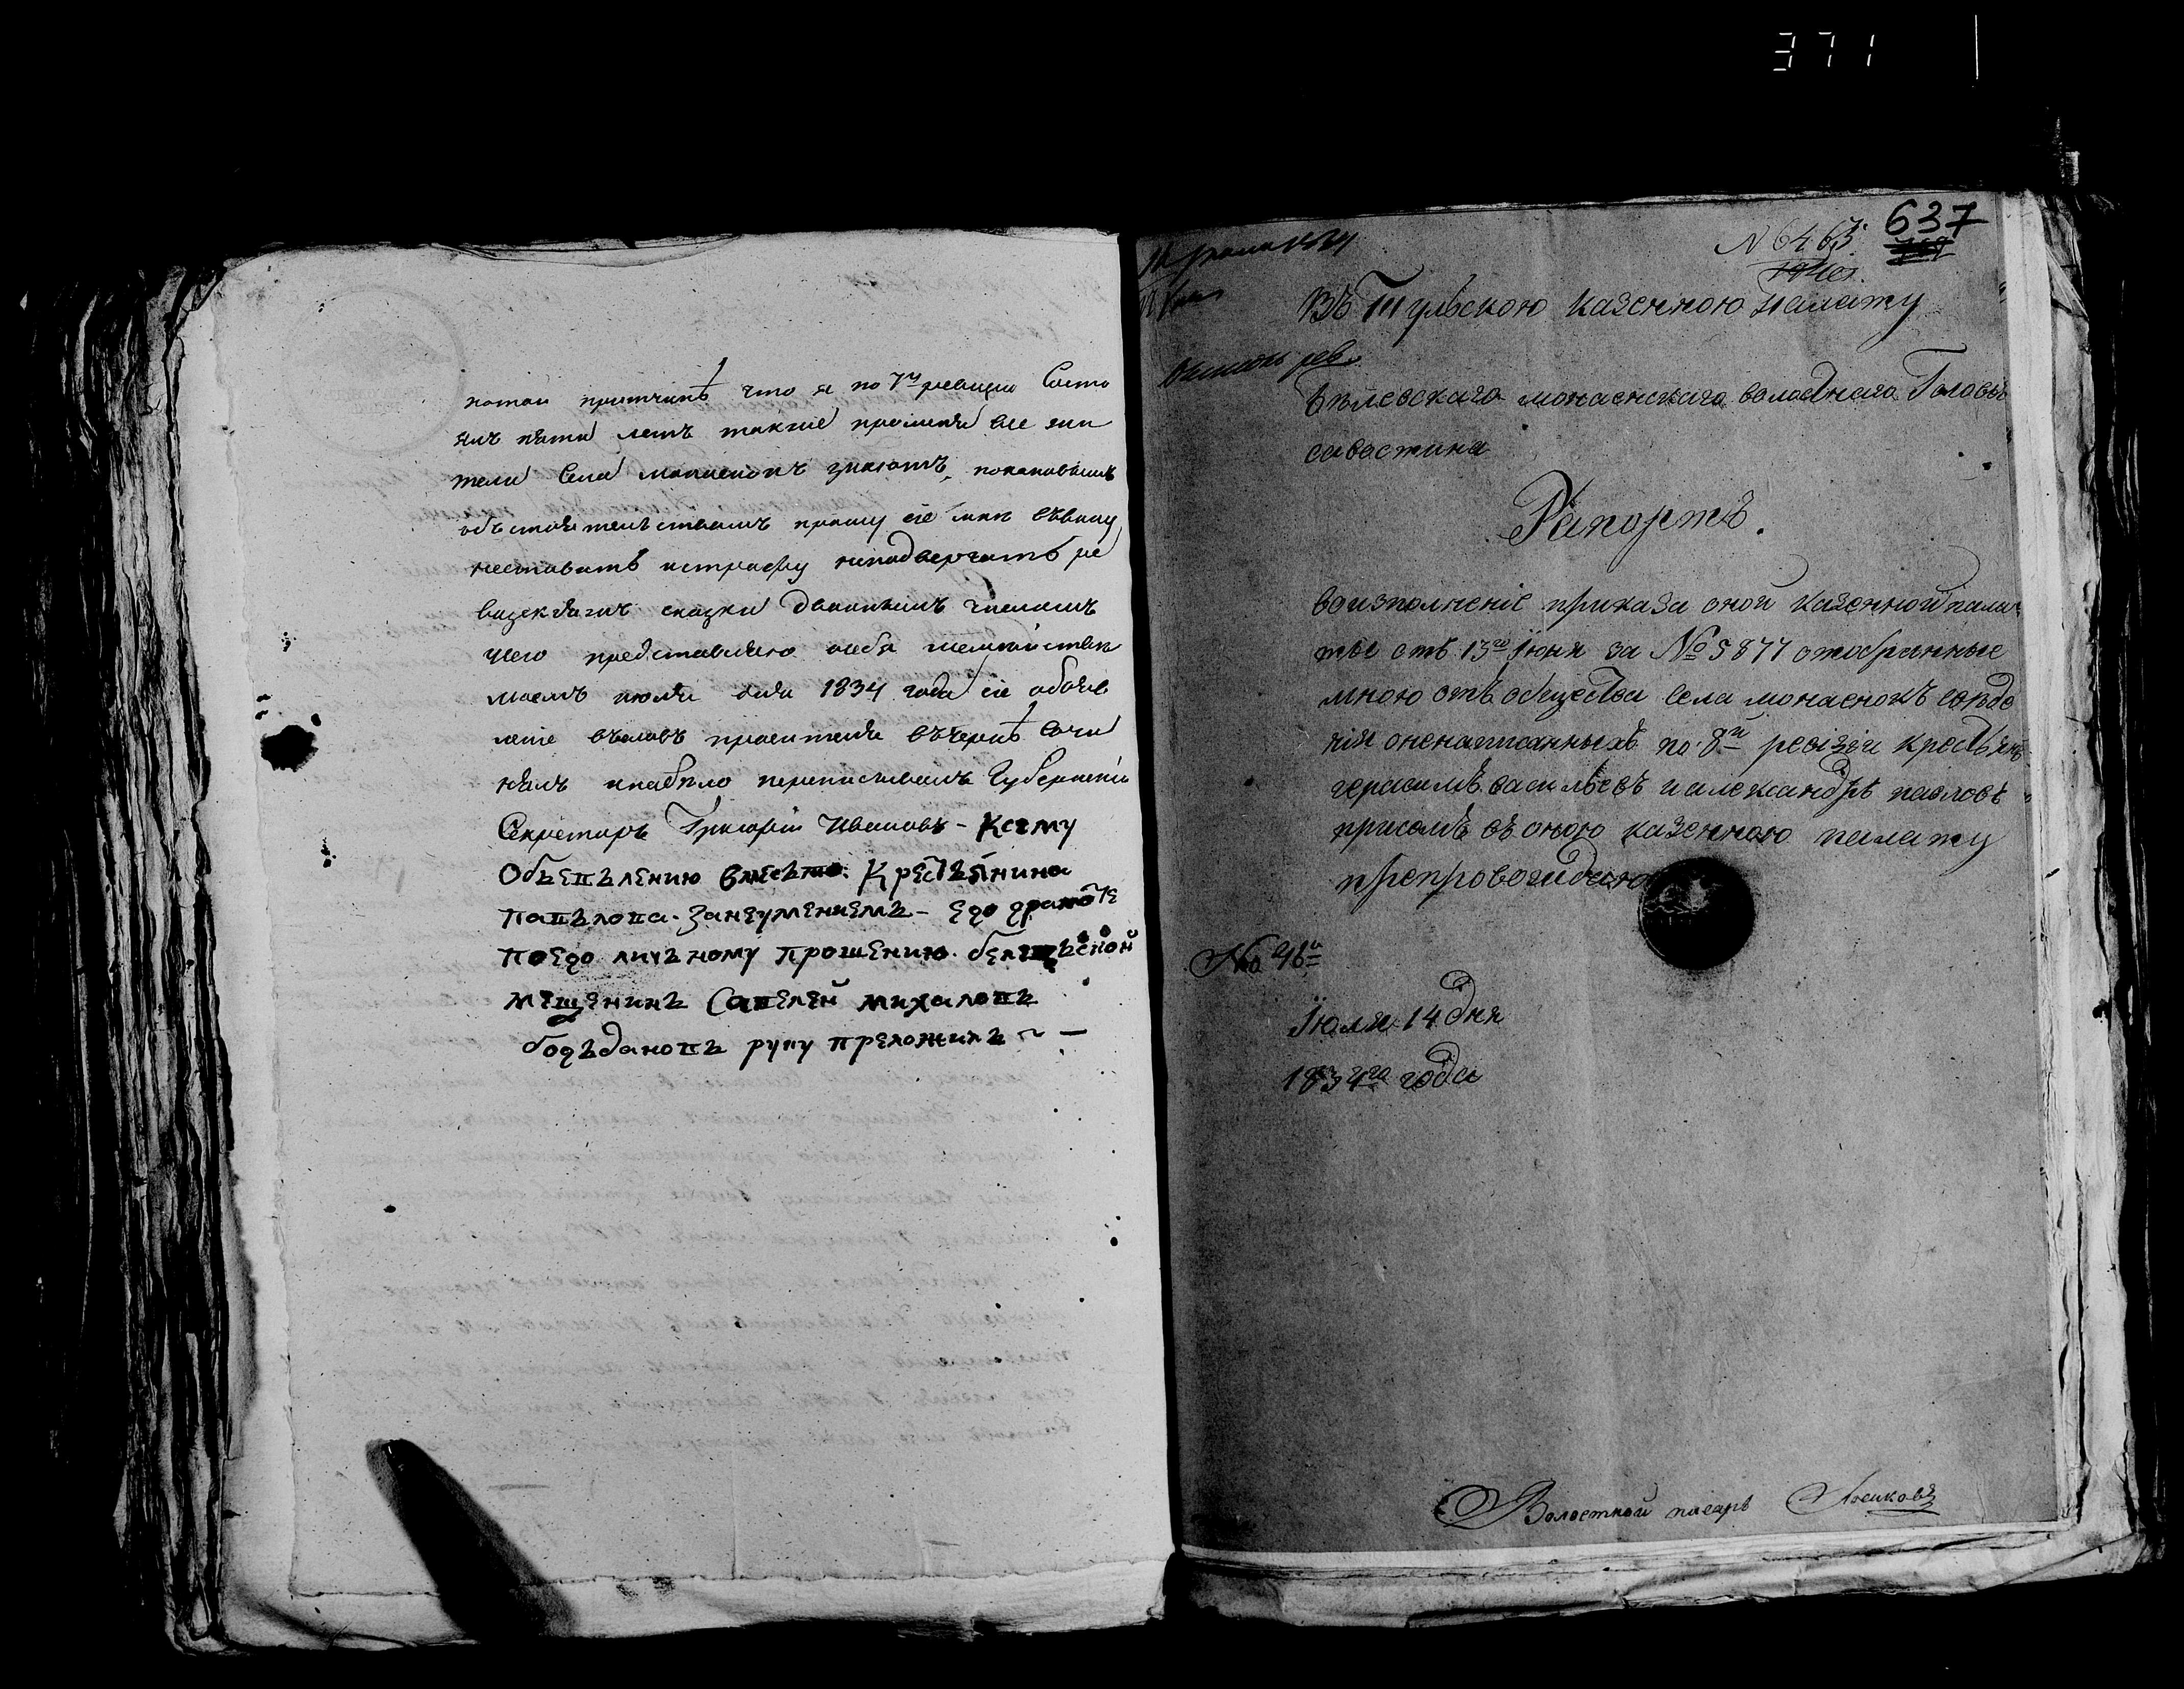 371
потой притчинѣ что я по 7й ревизии Состо
ялъ пяти летъ такъже протчия все жи
тели Села монаенокъ знаютъ, покаковымъ
обстоятелствамъ прошу сие мне въвину
неставить иструфу неподвергать ре
визскаяжъ сказки
чего представляю особя
июля дня 1834 года сие объяв
ление сословъ просителя вчернѣ Сочи
нялъ инабело переписывалъ Губернский
Секретарь Григорий Ивановъ – Ксему
Объепълению вместо Крестьянина
Папълопа занеумениемъ – его грамоте
поего личъному прошению белепъской
мещенинъ Сапелей михалопъ
богъданопъ руку преложилъ ~ –
637
N 6463
Въ Тульскою Казенною палату
Бѣлевскаго монаенскаго волостнаго Головы
савостина
Рапортъ.
воизполнение приказа оной казенной пала
ты отъ 13го Июня за № 5877 отобранные
мною отъ общества села монаенокъ сведе
ния оненаписанныхъ по 8й ревизии крестьянъ
герасимѣ васильевѣ иалександрѣ павловѣ
присемъ въ оною казенною палату
препровождаю
№ 46й
Июля 14 дня
1834го года
Волостной писарь